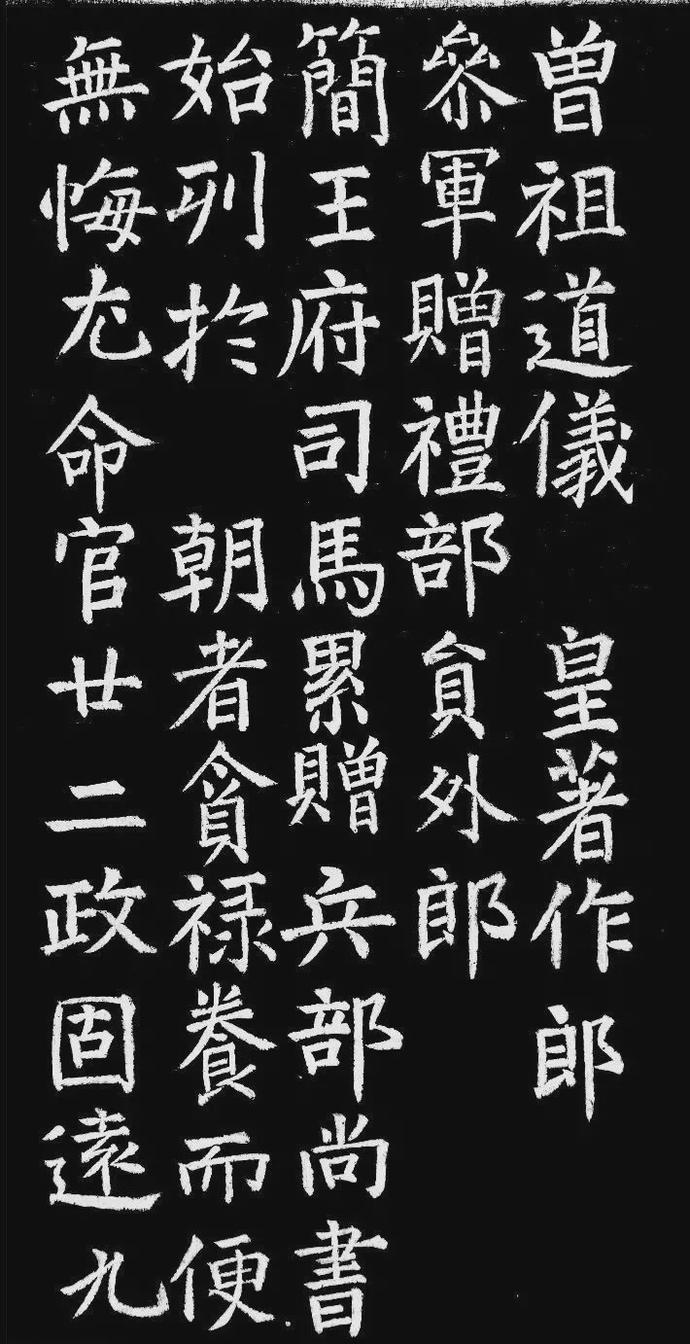 曽祖道儀 皇著作郎
叅軍贈禮部貟外郎
簡王府司馬累贈兵部尚書
始列於 朝者貧祿養而便
無悔尤命官廿二政固遠九